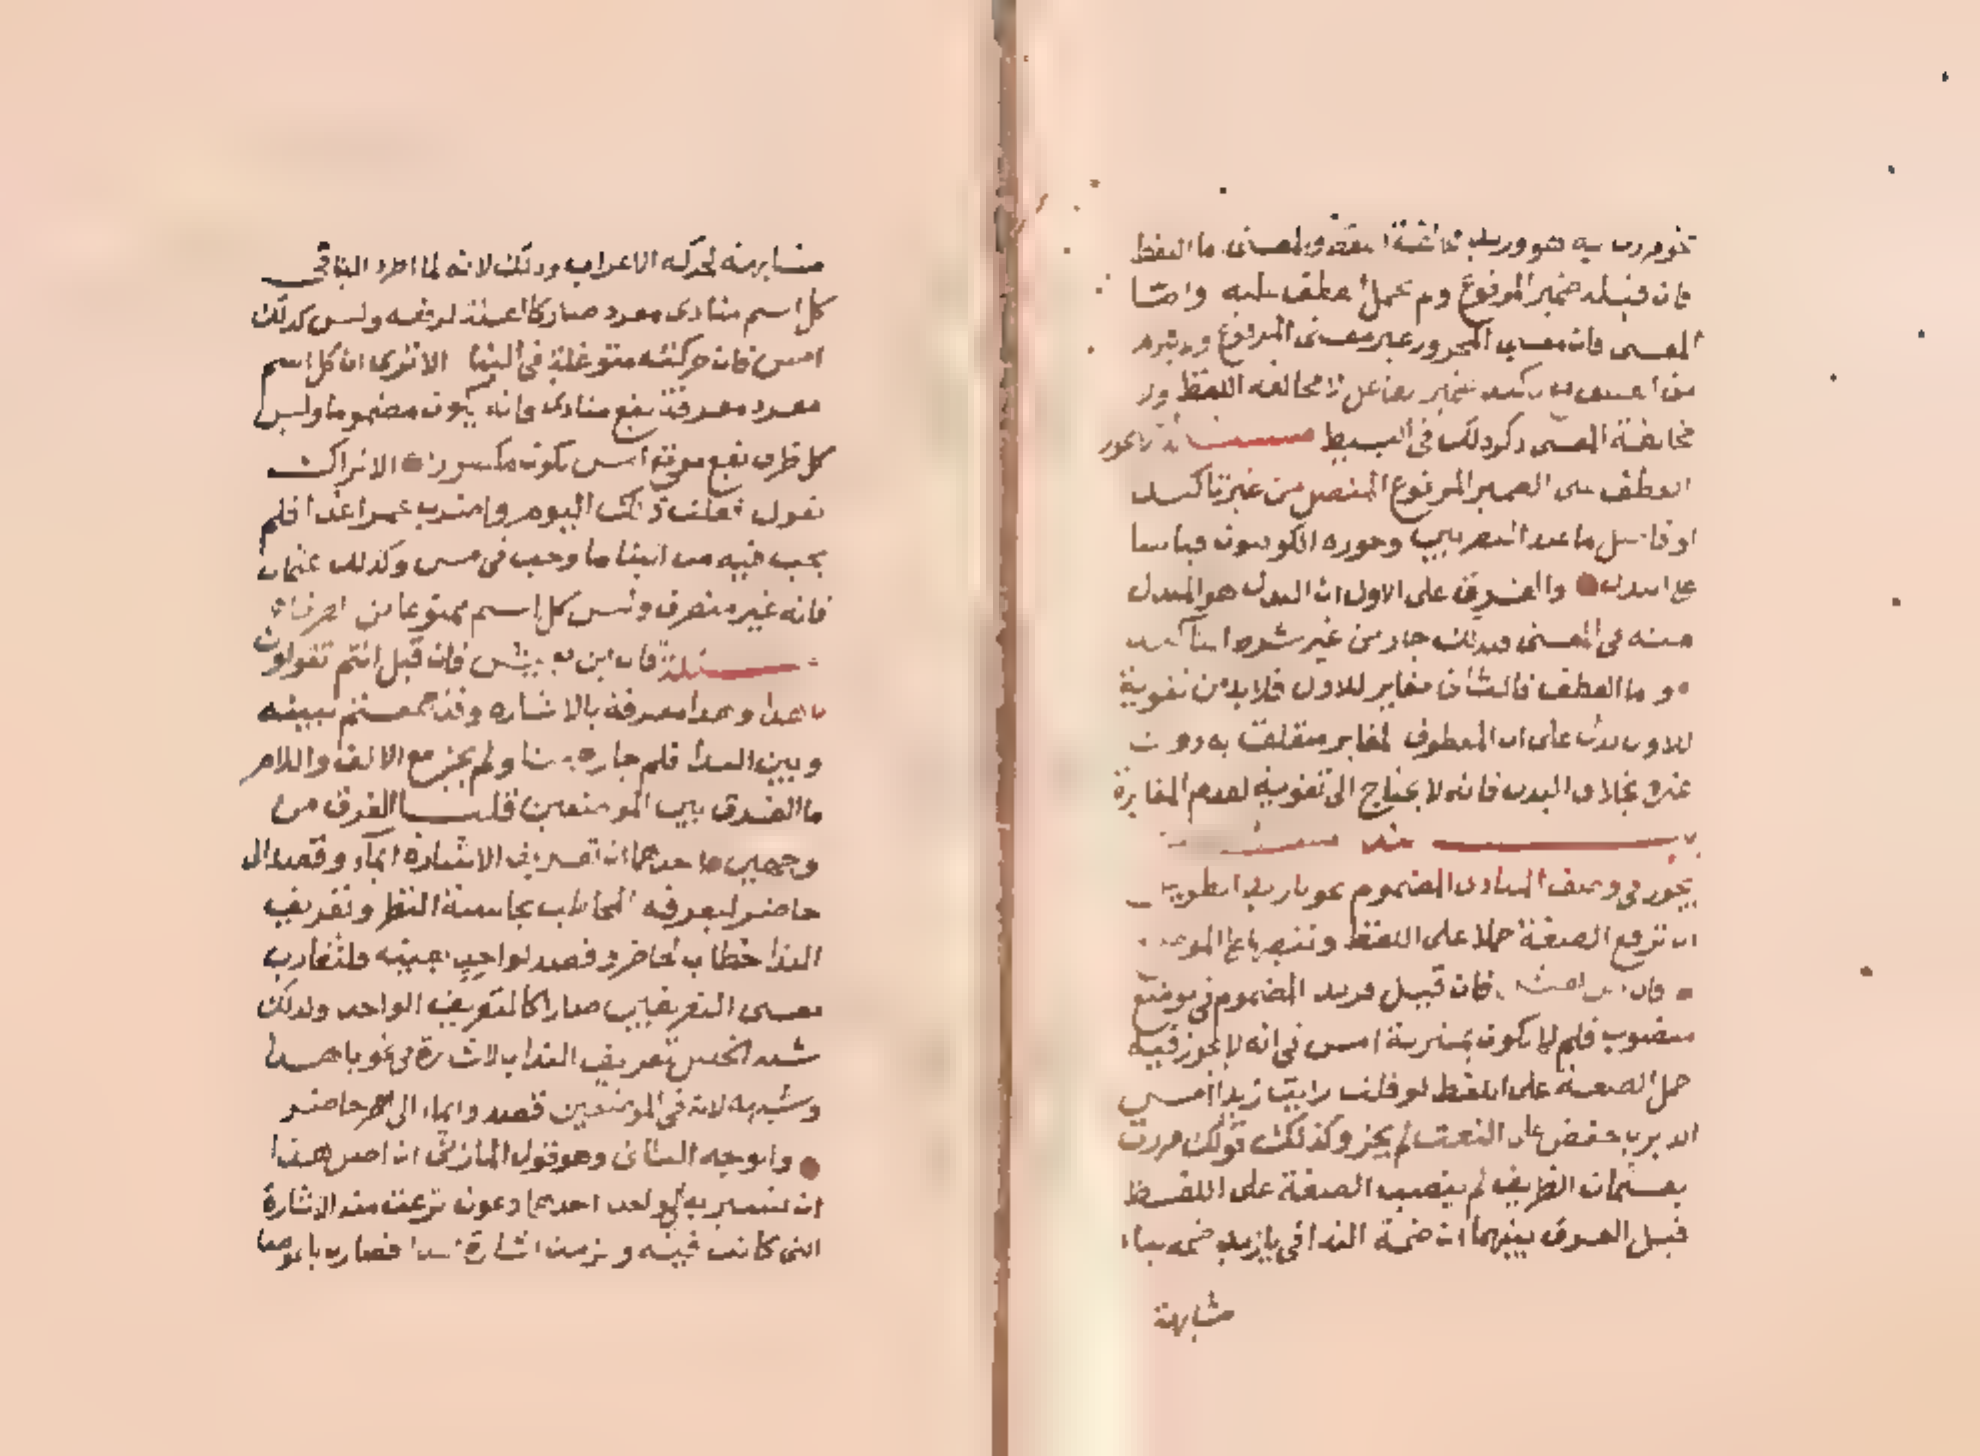 نحو مررت به هو وزيد مخالفة اللفظ والمعنى اما اللفظ
فان قبله ضمير المرفوع ولم يحمل العطف عليه واما
المعنى فان معنى المجرور غير معنى المرفوع
مخالفة المعنى ذكر ذلك في البسيط مسئلة لا يجوز
العطف على الضمير المرفوع المتصل من غير تاكيد
او فاصل ما عند البصريين وجوزه الكوفيون قياسا
على البدل والفرق على الاول ان البدل هو المبدل
منه في المعنى فلذلك جاز من غير شرط التاكيد
واما العطف فالثاني مغاير للاول فلا بد من تقوية
للاول تدل على ان المعطوف المغاير متعلق به دون
غيره بخلاف البدل فانه لا يحتاج الى تقوية لعدم المغايرة
مسئلة
يجوز في وصف المنادى المضموم نحو يا زيد الطويل
ان ترفع الصفة حملا على اللفظ وتنصبها على الموضع
قال ابن يعيش فان قيل فزيد المضموم في موضع
منصوب فلم لا يكون بمنزلة امس في انه لا يجوز فيه
حمل الصفة على اللفظ لو قلت رايت زيدا امس
الدابر بخفض على النعت لم يجز وكذلك قولك مررت
بعثمان الظريف لم ينصب الصفة على اللفظ
قيل الفرق بينهما ان ضمة النداء في يا زيد ضمة بناء
مشابهة
مشابهة لحركة الاعراب وذلك لانه لما اطرد البنا في
كل اسم منادى مفرد صار كالعلة لرفعه وليس كذلك
امس فان حركته متوغلة في البنا الا ترى ان كل اسم
مفرد معرفة يقع منادى فانه يكون مضموما وليس
كل ظرف يقع موقع امس يكون مكسورا الا تراك
تقول فعلت ذلك اليوم واضرب عمرا غدا فلم
يجب فيه من البنا ما وجب في امس وكذلك عثمان
فانه غير منصرف وليس كل اسم ممنوعا من الصرف
مسئلة قال ابن يعيش فان قيل انتم تقولون
يا هذا وهذا معرفة بالاشارة وقد جمعتم بينه
وبين الندا فلم جاز ههنا ولم يجز مع الالف واللام
ما الفرق بين الموضعين قلنا الفرق من
وجهين احدهما ان تعريف الاشارة ايماء وقصد الى
حاضر ليعرفه المخاطب بحاسة النظر وتعريف
الندا خطاب لحاضر وقصد لواحد بعينه فلتقارب
معنى التعريفين صارا كالتعريف الواحد ولذلك
شبه الخليل تعريف الندا بالاشارة في نحو يا هذا
وشبهه لانه في الموضعين قصد وايماء الى حاضر
والوجه الثاني وهو قول المازني ان اصل هذا
ان تشير به لواحد الى واحد فلما دعوته نزعت منه الاشارة
التي كانت فيه والزمته اشارة الندا فصارت يا عوضا